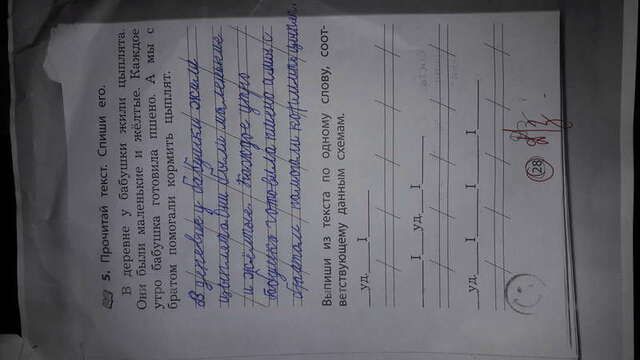 5. Прочитай текст. Спиши его.
В деревне у бабушки жили цыплята.
Они были маленькие и жёлтые. Каждое
утро бабушка готовила пшено. А мы с
братом помогали кормить цыплят.
В деревне у бабушки жили
цыплята они были маленькие
и жёлтые. Каждое утро
бабушка готовила пшено а мы с
братом помогали кормить цыплят.
Выпиши из текста по одному слову, соот-
ветствующему данным схемам.
уд. I
I уд. I
уд. I I
28